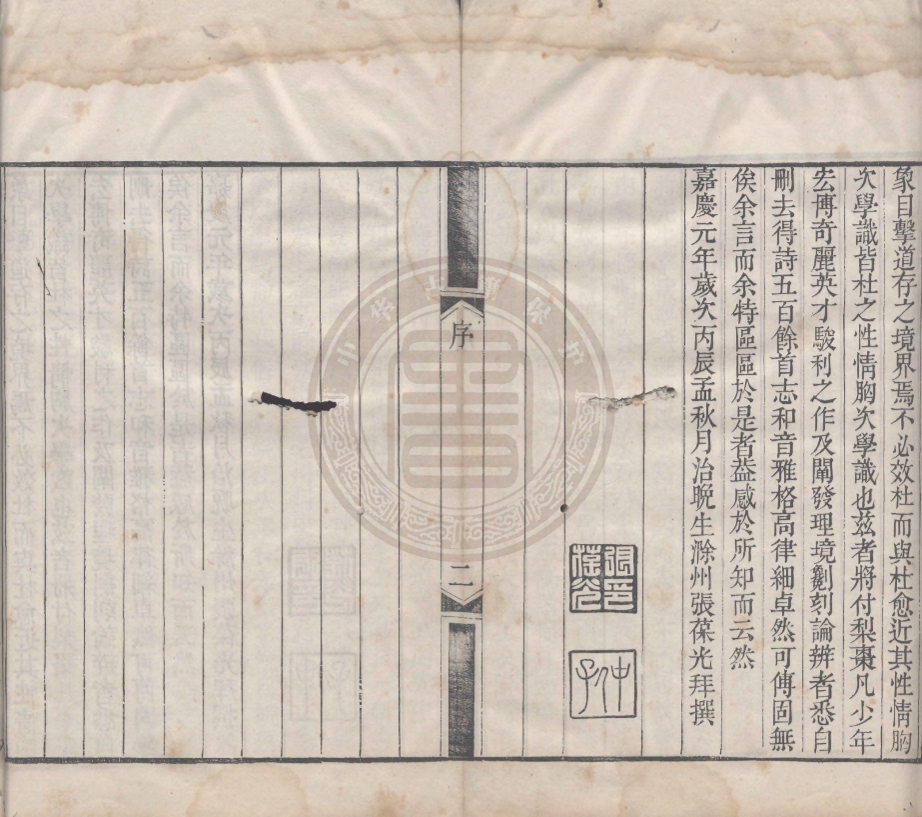 象目擊道存之境界焉不必效杜而與杜愈近其性情胸
次學識皆杜之性情胸次學識也茲者將付梨棗凡少年
宏博奇麗英才駿利之作及闡發理境劖刻論辨者悉自
刪去得詩五百餘首志和音雅格高律細卓然可傳固無
俟余言而余特區區於是者葢感於所知而云然
嘉慶元年歲次丙辰孟秋月治晩生滁州張葆光拜撰
張葆光印
仲子
序
二